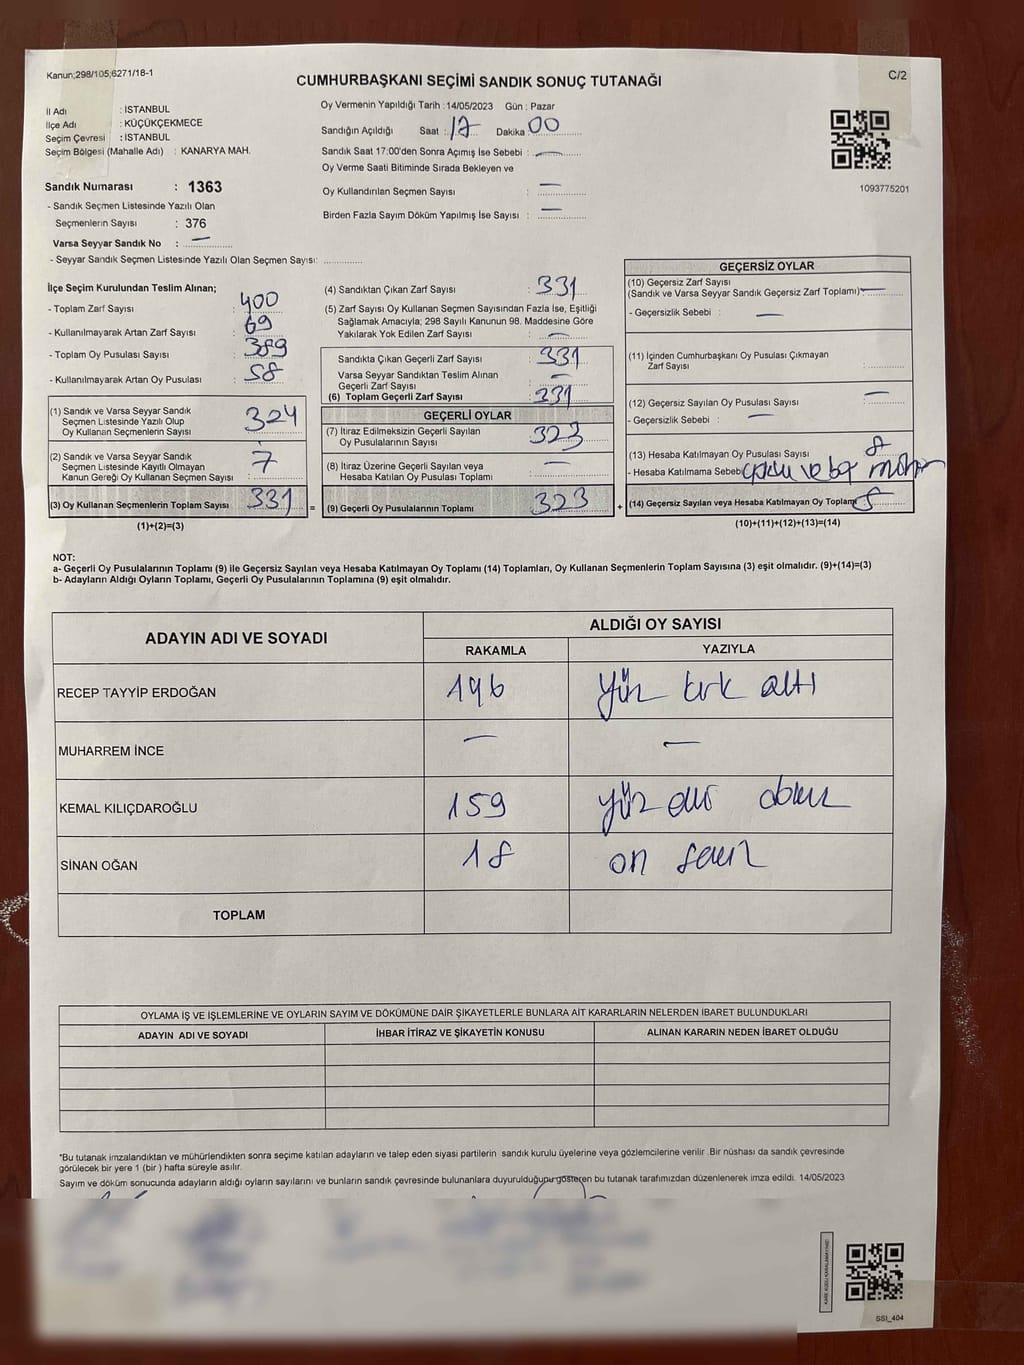 Kanun;298/105;6271/18-1
C/2
CUMHURBAŞKANI SEÇİMİ SANDIK SONUÇ TUTANAĞI
İl Adı : İSTANBUL
İlçe Adı : KÜÇÜKÇEKMECE
Seçim Çevresi : İSTANBUL
Seçim Bölgesi (Mahalle Adı) : KANARYA MAH.
Sandık Numarası : 1363
- Sandık Seçmen Listesinde Yazılı Olan
Seçmenlerin Sayısı : 376
Varsa Seyyar Sandık No : —
- Seyyar Sandık Seçmen Listesinde Yazılı Olan Seçmen Sayısı:
Oy Vermenin Yapıldığı Tarih : 14/05/2023 Gün : Pazar
Sandığın Açıldığı Saat : 17 Dakika : 00
Sandık Saat 17:00'den Sonra Açımış İse Sebebi : —
Oy Verme Saati Bitiminde Sırada Bekleyen ve
Oy Kullandırılan Seçmen Sayısı : —
Birden Fazla Sayım Döküm Yapılmış İse Sayısı : —
1093775201
İlçe Seçim Kurulundan Teslim Alınan;
- Toplam Zarf Sayısı : 400
- Kullanılmayarak Artan Zarf Sayısı : 69
- Toplam Oy Pusulası Sayısı : 389
- Kullanılmayarak Artan Oy Pusulası : 58
(1) Sandık ve Varsa Seyyar Sandık
Seçmen Listesinde Yazılı Olup
Oy Kullanan Seçmenlerin Sayısı : 324
(2) Sandık ve Varsa Seyyar Sandık
Seçmen Listesinde Kayıtlı Olmayan
Kanun Gereği Oy Kullanan Seçmen Sayısı : 7
(3) Oy Kullanan Seçmenlerin Toplam Sayısı 331 =
(1)+(2)=(3)
(4) Sandıktan Çıkan Zarf Sayısı : 331
(5) Zarf Sayısı Oy Kullanan Seçmen Sayısından Fazla İse, Eşitliği
Sağlamak Amacıyla; 298 Sayılı Kanunun 98. Maddesine Göre
Yakılarak Yok Edilen Zarf Sayısı : —
Sandıkta Çıkan Geçerli Zarf Sayısı : 331
Varsa Seyyar Sandıktan Teslim Alınan
Geçerli Zarf Sayısı : —
(6) Toplam Geçerli Zarf Sayısı : 331
GEÇERLİ OYLAR
(7) İtiraz Edilmeksizin Geçerli Sayılan
Oy Pusulalarının Sayısı : 323
(8) İtiraz Üzerine Geçerli Sayılan veya
Hesaba Katılan Oy Pusulası Toplamı : —
(9) Geçerli Oy Pusulalarının Toplamı 323 +
GEÇERSİZ OYLAR
(10) Geçersiz Zarf Sayısı
(Sandık ve Varsa Seyyar Sandık Geçersiz Zarf Toplamı) —
- Geçersizlik Sebebi : —
(11) İçinden Cumhurbaşkanı Oy Pusulası Çıkmayan
Zarf Sayısı :
(12) Geçersiz Sayılan Oy Pusulası Sayısı : —
- Geçersizlik Sebebi : —
(13) Hesaba Katılmayan Oy Pusulası Sayısı : 8
- Hesaba Katılmama Sebebi ve
(14) Geçersiz Sayılan veya Hesaba Katılmayan Oy Toplamı 8
(10)+(11)+(12)+(13)=(14)
NOT:
a- Geçerli Oy Pusulalarının Toplamı (9) ile Geçersiz Sayılan veya Hesaba Katılmayan Oy Toplamı (14) Toplamları, Oy Kullanan Seçmenlerin Toplam Sayısına (3) eşit olmalıdır. (9)+(14)=(3)
b- Adayların Aldığı Oyların Toplamı, Geçerli Oy Pusulalarının Toplamına (9) eşit olmalıdır.
ADAYIN ADI VE SOYADI
ALDIĞI OY SAYISI
RAKAMLA YAZIYLA
RECEP TAYYİP ERDOĞAN 146 yüz kırk altı
MUHARREM İNCE — —
KEMAL KILIÇDAROĞLU 159 yüz elli dokuz
SİNAN OĞAN 18 on sekiz
TOPLAM
OYLAMA İŞ VE İŞLEMLERİNE VE OYLARIN SAYIM VE DÖKÜMÜNE DAİR ŞİKAYETLERLE BUNLARA AİT KARARLARIN NELERDEN İBARET BULUNDUKLARI
ADAYIN ADI VE SOYADI İHBAR İTİRAZ VE ŞİKAYETİN KONUSU ALINAN KARARIN NEDEN İBARET OLDUĞU
*Bu tutanak imzalandıktan ve mühürlendikten sonra seçime katılan adayların ve talep eden siyasi partilerin sandık kurulu üyelerine veya gözlemcilerine verilir .Bir nüshası da sandık çevresinde
görülecek bir yere 1 (bir ) hafta süreyle asılır.
Sayım ve döküm sonucunda adayların aldığı oyların sayılarını ve bunların sandık çevresinde bulunanlara duyurulduğunu gösteren bu tutanak tarafımızdan düzenlenerek imza edildi. 14/05/2023
SSI_404